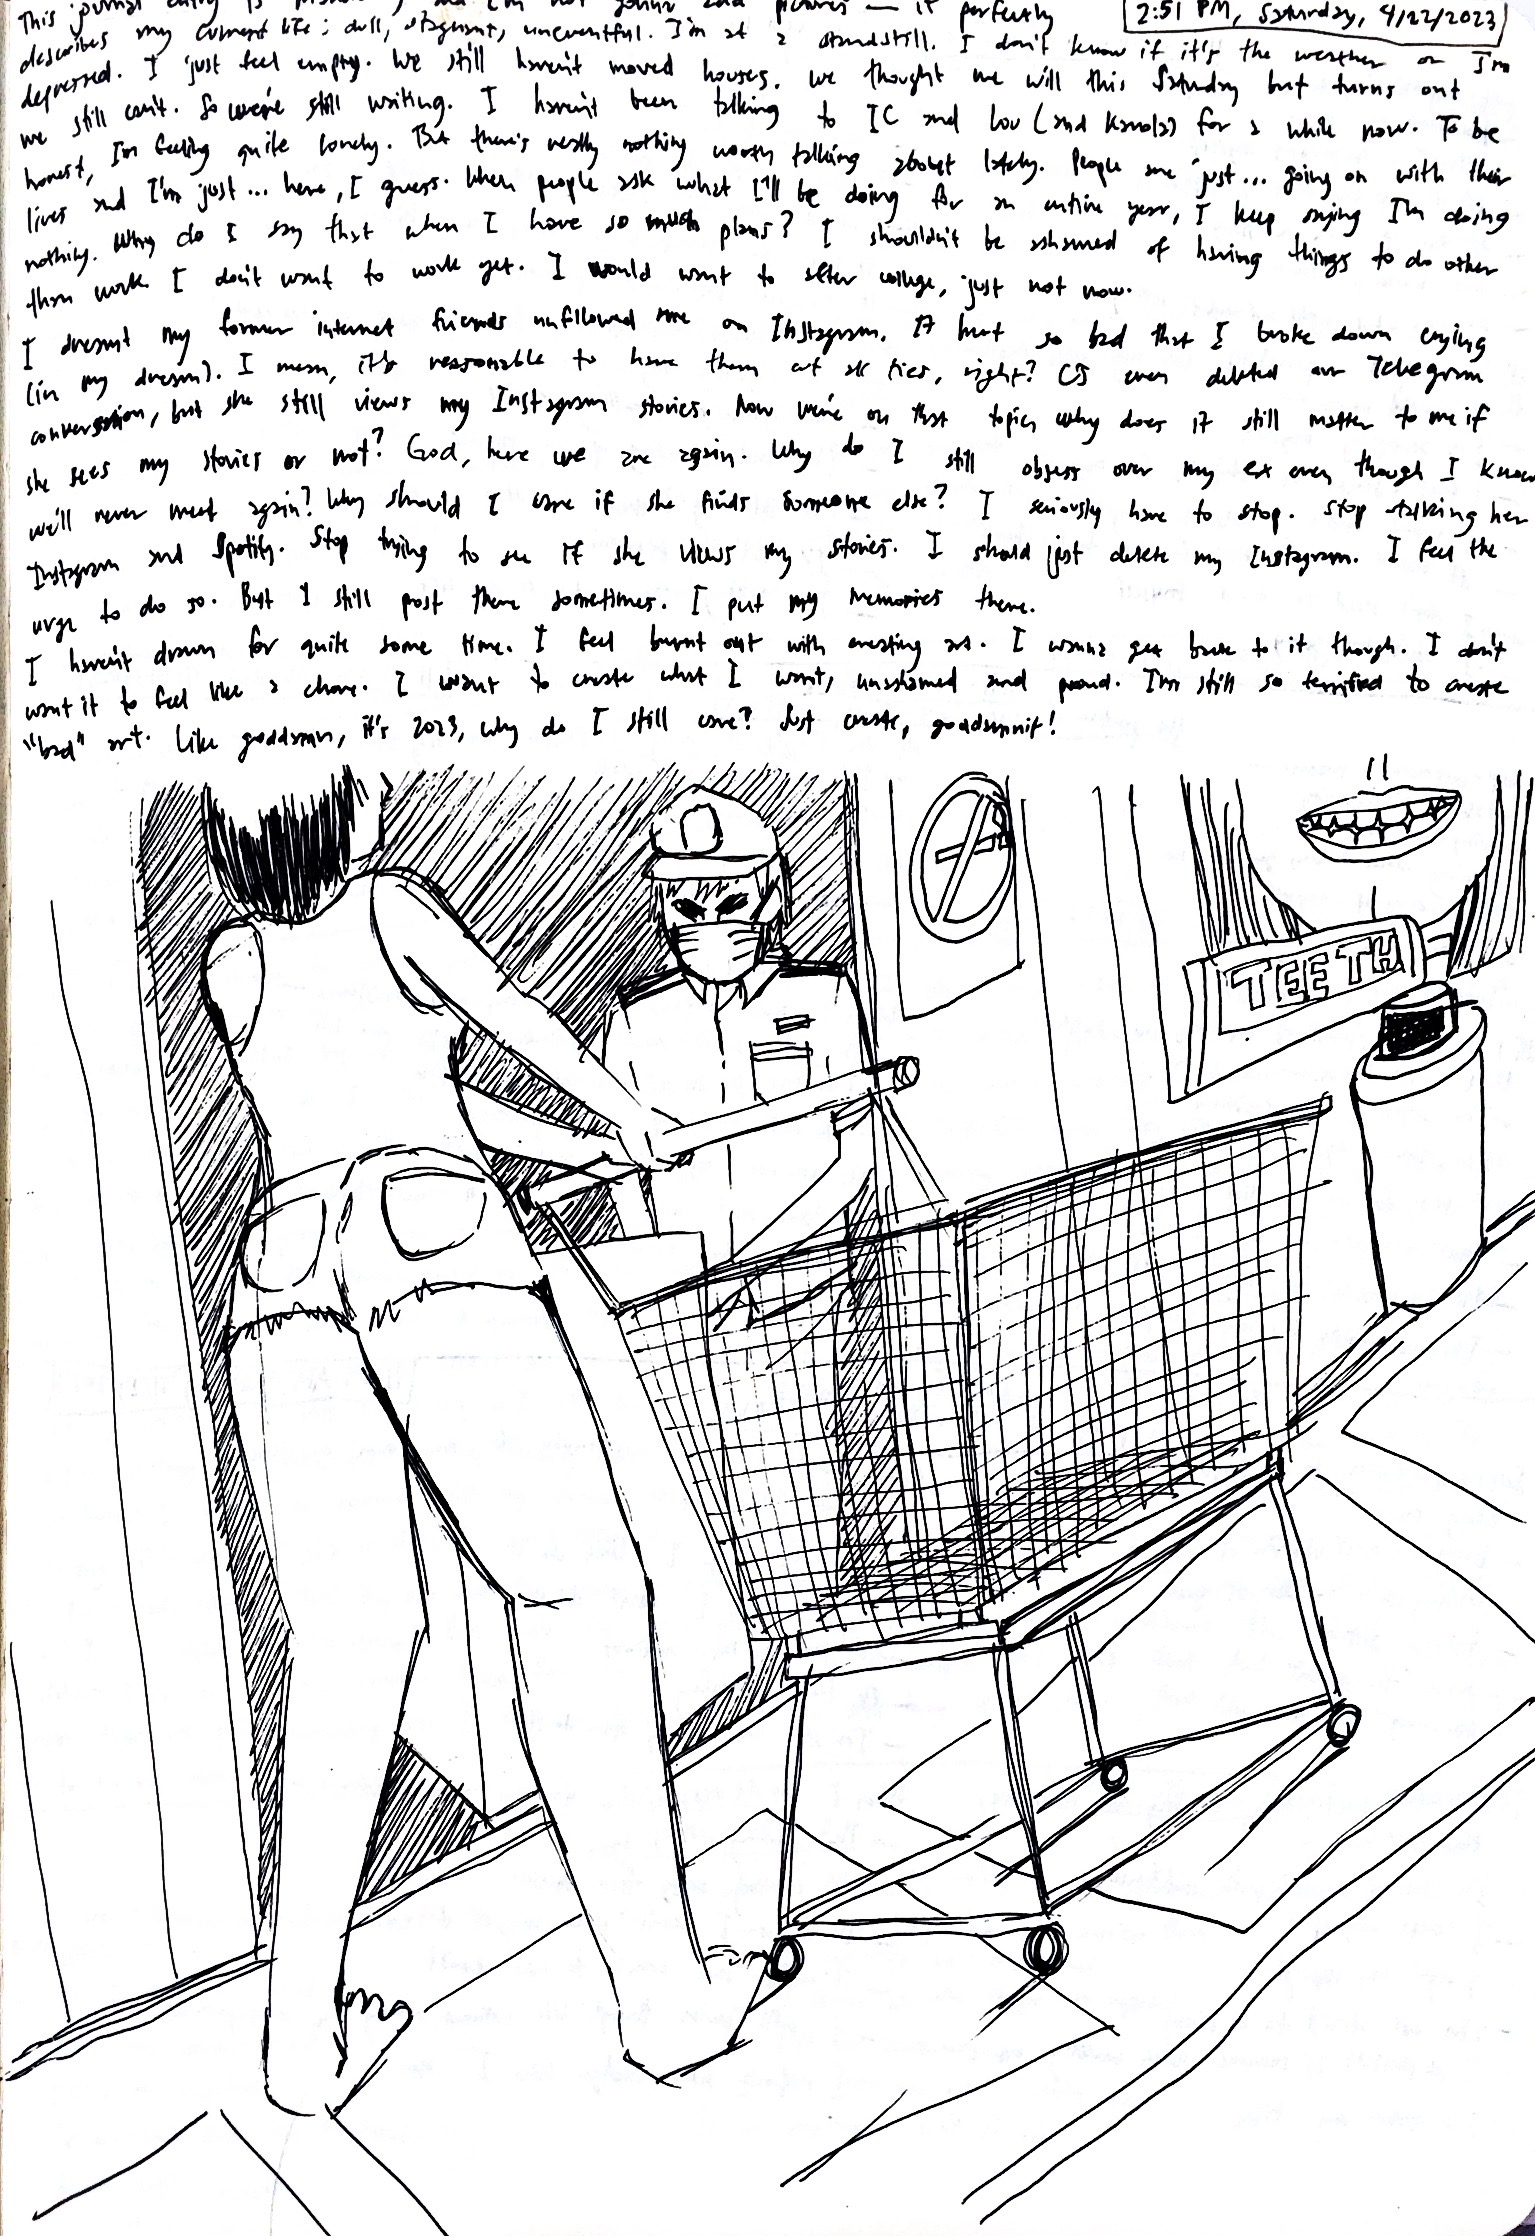 This journal entry is and I'm not gonna add pictures — it perfectly
2:51 PM, Saturday, 4/22/2023
describes my current life: dull, stagnant, uneventful. I'm at a standstill. I don't know if it's the weather or I'm
depressed. I just feel empty. We still haven't moved houses. We thought we will this Saturday but turns out
we still can't. So we're still waiting. I haven't been talking to IC and Lou (and Karola) for a while now. To be
honest, I'm feeling quite lonely. But there's really nothing worth talking about lately. People are just... going on with their
lives and I'm just... here, I guess. When people ask what I'll be doing for an entire year, I keep saying I'm doing
nothing. Why do I say that when I have so much plans? I shouldn't be ashamed of having things to do other
than work. I don't want to work yet. I would want to after college, just not now.
I dreamt my former internet friends unfollowed me on Instagram. It hurt so bad that I broke down crying
(in my dream). I mean, it's reasonable to have them cut all ties, right? CJ even deleted our Telegram
conversation, but she still views my Instagram stories. Now we're on that topic, why does it still matter to me if
she sees my stories or not? God, here we are again. Why do I still obsess over my ex even though I know
we'll never meet again? Why should I care if she finds someone else? I seriously have to stop. Stop stalking her
Instagram and Spotify. Stop trying to see if she views my stories. I should just delete my Instagram. I feel the
urge to do so. But I still post there sometimes. I put my memories there.
I haven't drawn for quite some time. I feel burnt out with creating art. I wanna get back to it though. I don't
want it to feel like a chore. I want to create what I want, unashamed and proud. I'm still so terrified to create
"bad" art. Like goddamn, it's 2023, why do I still care? Just create, goddamnit!
TEETH